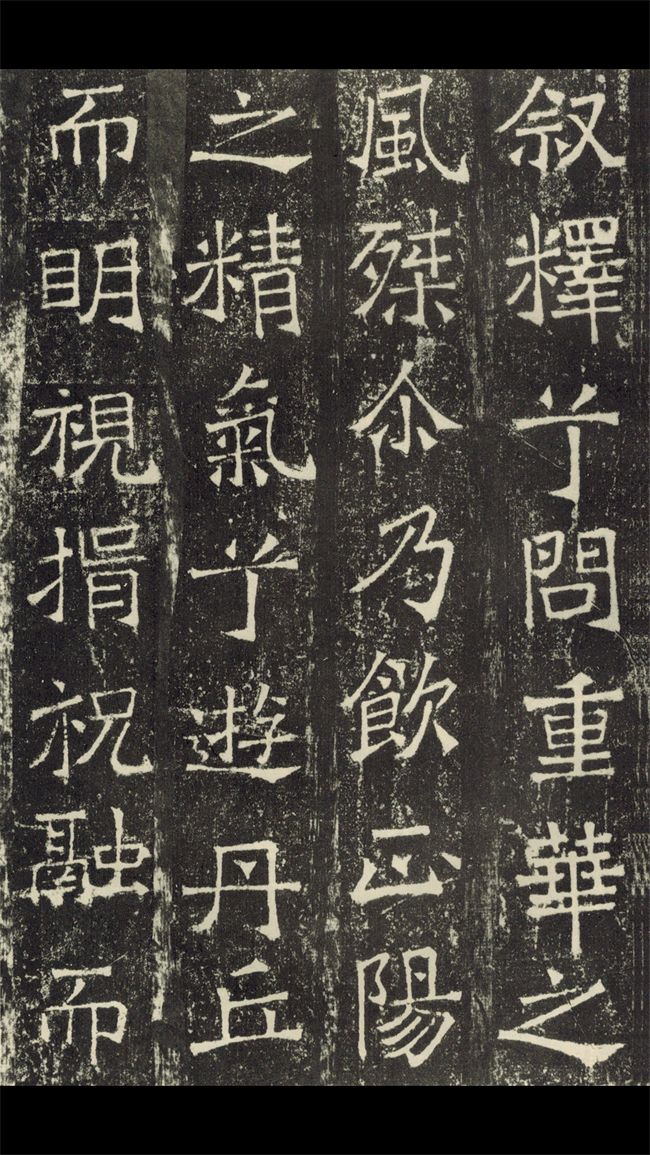 叙釋兮問重華之
風桀尒乃飲正陽
之精氣兮遊丹丘
而眀視揖祝融而